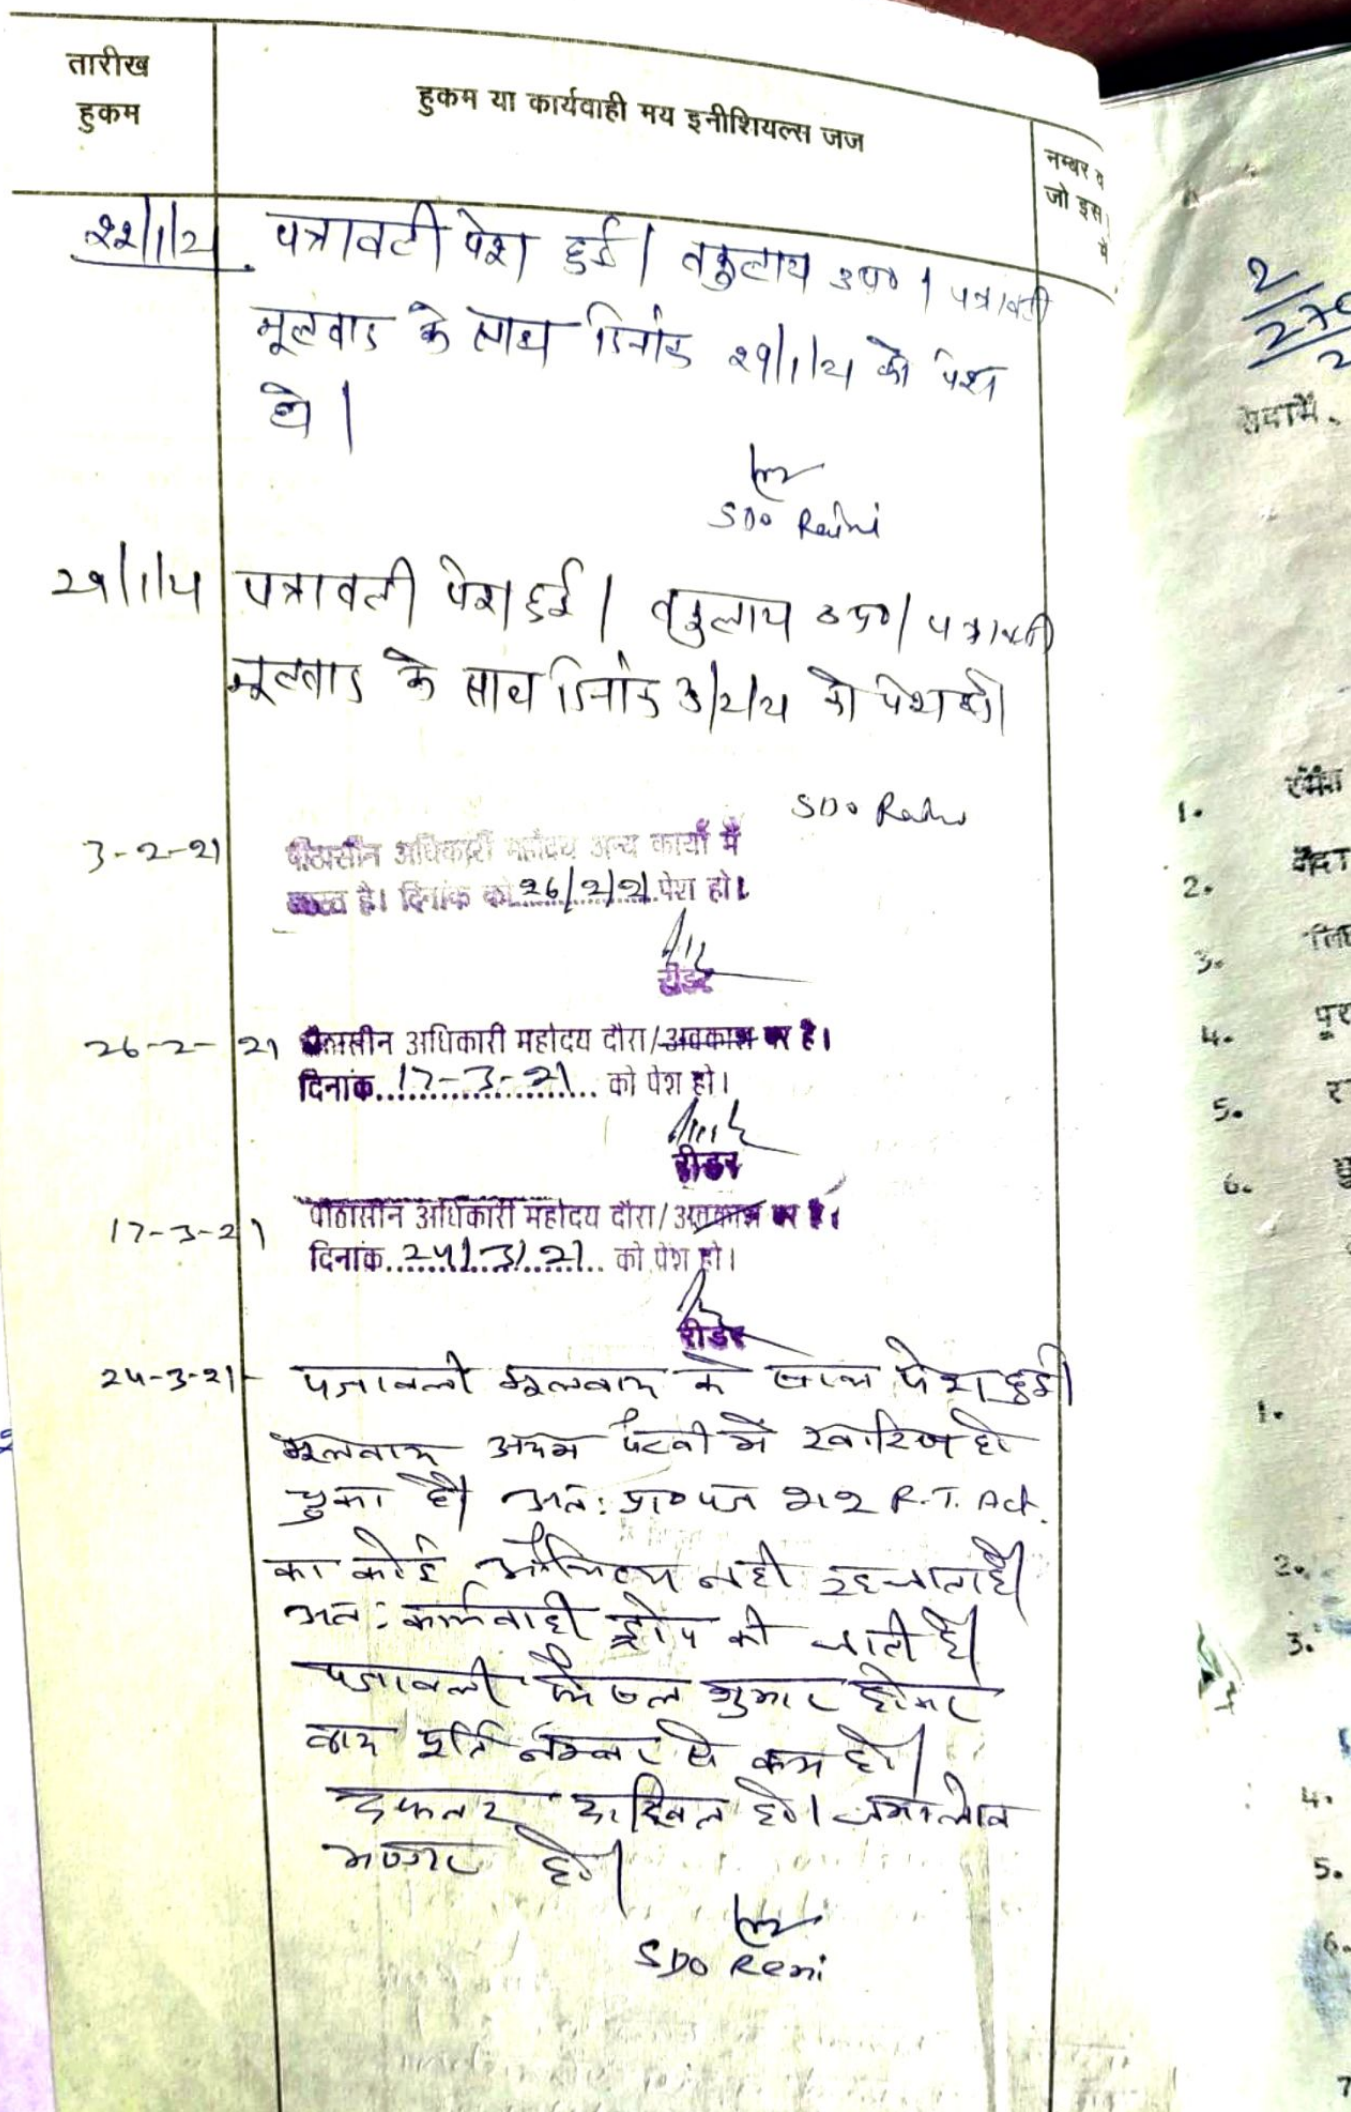 तारीख
हुकम
हुकम या कार्यवाही मय इनीशियल्स जज
नम्बर व
जो इस
में
22/1/21 पत्रावली पेश हुई। वकुलाय उप०। पत्रावली
मूलवाद के साथ दिनांक 29/1/21 को पेश
हो।
SDO Reini
29/1/21 पत्रावली पेश हुई। वकुलाय उप०। पत्रावली
मूलवाद के साथ दिनांक 3/2/21 को पेश हो।
SDO Reini
3-2-21 पीठासीन अधिकारी महोदय अन्य कार्यों में
व्यस्त है। दिनांक को 26/2/21 पेश हो।
रीडर
26-2-21 पीठासीन अधिकारी महोदय दौरा/अवकाश पर है।
दिनांक 17-3-21 को पेश हो।
रीडर
17-3-21 पीठासीन अधिकारी महोदय दौरा/अवकाश पर है।
दिनांक 24/3/21 को पेश हो।
रीडर
24-3-21 पत्रावली मूलवाद के साथ पेश हुई।
मूलवाद अदम पैरवी में खारिज हो
चुका है। अतः प्रा०पत्र 212 R.T. Act.
का कोई औचित्य नहीं रह जाता है।
अतः कार्यवाही ड्रोप की जाती है।
पत्रावली फैसल शुमार होकर
बाद पूर्ति नम्बर से कम हो।
दफ्तर दाखिल हो।
हो।
SDO Reini
सेवामें,
1.
2.
3.
4.
5.
6.
1.
2.
3.
4.
5.
6.
7